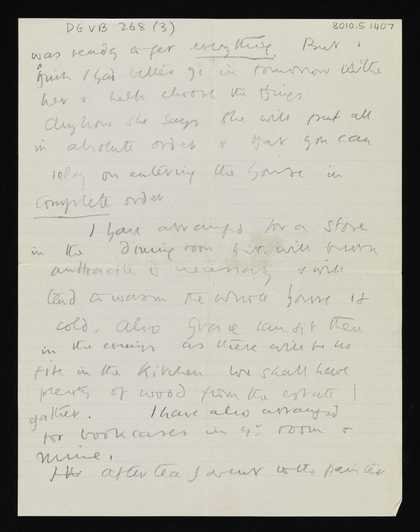 DGVB 268 (3)
8010.5.1407
was ready after everything But I
think I had better go in tomorrow with
her & help choose the things
Anyhow she says she will put all
in absolute order & that you can
rely on entering the house in
complete order
I have arranged for a stove
in the dining room which will burn
anthracite if necessary & will
tend to warm the whole house if
cold. Also Grace can sit then
in the evenings as there will be no
fire in the kitchen We shall have
plenty of wood from the estate I
gather. I have also arranged
for bookcases in yr room &
mine.
after tea I went to the painter